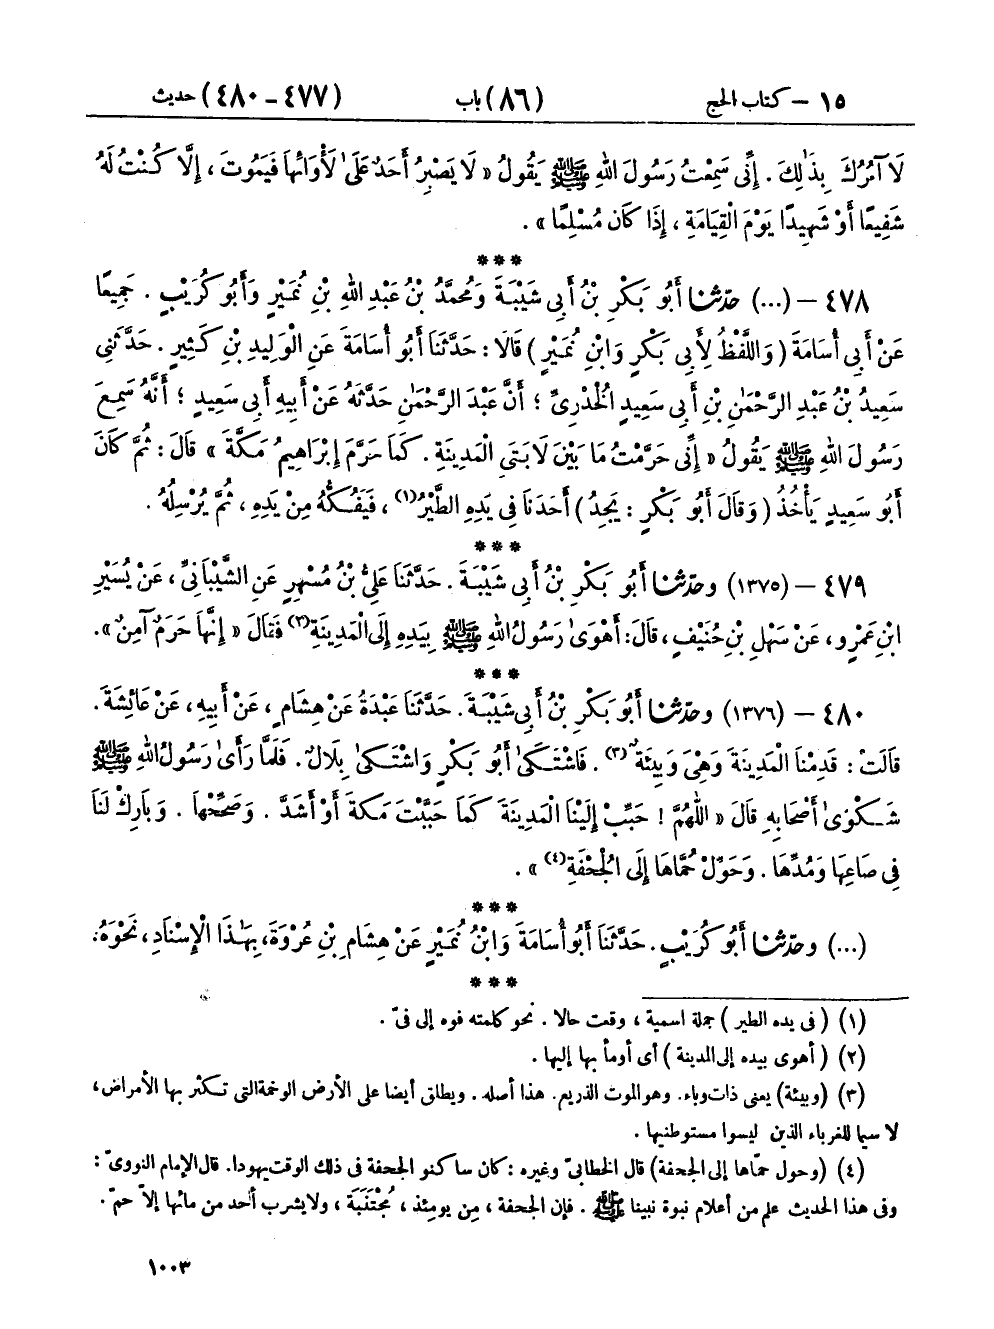 ١٥ – كتاب الحج (٨٦) باب (٤٧٧-٤٨٠) حديث
لَا آمُرُكَ بِذَٰلِكَ . إِنِّي سَمِعْتُ رَسُولَ اللهِ ﷺ يَقُولُ « لَا يَصْبِرُ أَحَدٌ عَلَىٰ لَأْوَائِهَا فَيَمُوتَ ، إِلَّا كُنْتُ لَهُ
شَفِيعًا أَوْ شَهِيدًا يَوْمَ الْقِيَامَةِ ، إِذَا كَانَ مُسْلِمًا » .
***
٤٧٨ – (...) حدّثنا أَبُو بَكْرِ بْنُ أَبِي شَيْبَةَ وَمُحَمَّدُ بْنُ عَبْدِ اللهِ بْنِ نُمَيْرٍ وَأَبُو كُرَيْبٍ . جَمِيعًا
عَنْ أَبِي أُسَامَةَ ( وَاللَّفْظُ لِأَبِي بَكْرٍ وَابْنِ نُمَيْرٍ ) قَالَا : حَدَّثَنَا أَبُو أُسَامَةَ عَنِ الْوَلِيدِ بْنِ كَثِيرٍ . حَدَّثَنِي
سَعِيدُ بْنُ عَبْدِ الرَّحْمَٰنِ بْنِ أَبِي سَعِيدٍ الْخُدْرِيِّ ؛ أَنَّ عَبْدَ الرَّحْمَٰنِ حَدَّثَهُ عَنْ أَبِيهِ أَبِي سَعِيدٍ ؛ أَنَّهُ سَمِعَ
رَسُولَ اللهِ ﷺ يَقُولُ « إِنِّي حَرَّمْتُ مَا بَيْنَ لَابَتَيِ الْمَدِينَةِ . كَمَا حَرَّمَ إِبْرَاهِيمُ مَكَّةَ » قَالَ : ثُمَّ كَانَ
أَبُو سَعِيدٍ يَأْخُذُ ( وَقَالَ أَبُو بَكْرٍ : يَجِدُ ) أَحَدَنَا فِي يَدِهِ الطَّيْرُ(١) ، فَيَفُكُّهُ مِنْ يَدِهِ ، ثُمَّ يُرْسِلُهُ .
***
٤٧٩ – (١٣٧٥) وحدّثنا أَبُو بَكْرِ بْنُ أَبِي شَيْبَةَ . حَدَّثَنَا عَلِيُّ بْنُ مُسْهِرٍ عَنِ الشَّيْبَانِيِّ ، عَنْ يُسَيْرِ
ابْنِ عَمْرٍو ، عَنْ سَهْلِ بْنِ حُنَيْفٍ ، قَالَ : أَهْوَىٰ رَسُولُ اللهِ ﷺ بِيَدِهِ إِلَى الْمَدِينَةِ(٢) فَقَالَ « إِنَّهَا حَرَمٌ آمِنٌ » .
***
٤٨٠ – (١٣٧٦) وحدّثنا أَبُو بَكْرِ بْنُ أَبِي شَيْبَةَ . حَدَّثَنَا عَبْدَةُ عَنْ هِشَامٍ ، عَنْ أَبِيهِ ، عَنْ عَائِشَةَ .
قَالَتْ : قَدِمْنَا الْمَدِينَةَ وَهْيَ وَبِيئَةٌ(٣) . فَاشْتَكَىٰ أَبُو بَكْرٍ وَاشْتَكَىٰ بِلَالٌ . فَلَمَّا رَأَىٰ رَسُولُ اللهِ ﷺ
شَكْوَىٰ أَصْحَابِهِ قَالَ « اللّٰهُمَّ ! حَبِّبْ إِلَيْنَا الْمَدِينَةَ كَمَا حَبَّبْتَ مَكَّةَ أَوْ أَشَدَّ . وَصَحِّحْهَا . وَبَارِكْ لَنَا
فِي صَاعِهَا وَمُدِّهَا . وَحَوِّلْ حُمَّاهَا إِلَى الْجُحْفَةِ(٤) » .
***
(...) وحدّثنا أَبُو كُرَيْبٍ . حَدَّثَنَا أَبُو أُسَامَةَ وَابْنُ نُمَيْرٍ عَنْ هِشَامِ بْنِ عُرْوَةَ ، بِهَٰذَا الْإِسْنَادِ ، نَحْوَهُ .
***
(١) ( في يده الطير ) جملة اسمية ، وقعت حالا . نحو كلمته فوه إلى فيّ .
(٢) ( أهوى بيده إلى المدينة ) أى أومأ بها إليها .
(٣) (وبيئة) يعنى ذات وباء . وهو الموت الذريع . هذا أصله . ويطلق أيضا على الأرض الوخمة التى تكثر بها الأمراض ،
لا سيما للغرباء الذين ليسوا مستوطنيها .
(٤) (وحول حمّاها إلى الجحفة) قال الخطابيّ وغيره : كان ساكنو الجحفة فى ذلك الوقت يهودا . قال الإمام النووىّ :
وفى هذا الحديث علم من أعلام نبوة نبينا ﷺ . فإن الجحفة ، مِن يومئذ ، مُجْتَنَبَة ، ولا يشرب أحد من مائها إلاّ حمّ .
١٠٠٣